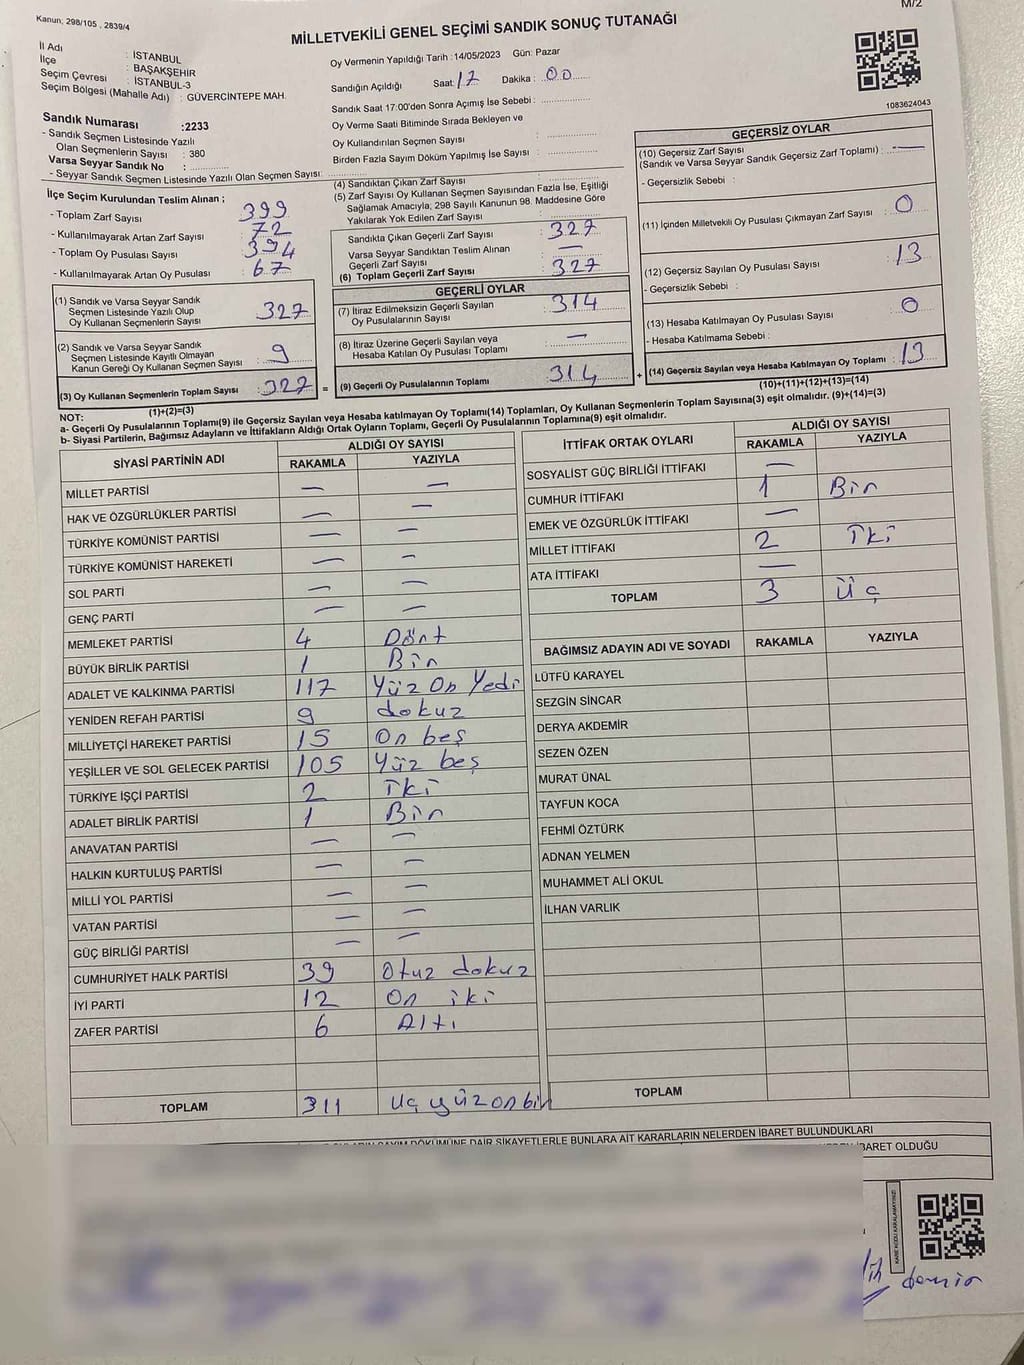 Kanun; 298/105 , 2839/4
M/2
MİLLETVEKİLİ GENEL SEÇİMİ SANDIK SONUÇ TUTANAĞI
İl Adı : İSTANBUL
İlçe : BAŞAKŞEHİR
Seçim Çevresi : İSTANBUL-3
Seçim Bölgesi (Mahalle Adı) : GÜVERCİNTEPE MAH.
Oy Vermenin Yapıldığı Tarih :14/05/2023 Gün: Pazar
Sandığın Açıldığı Saat: 17 Dakika : 00
Sandık Saat 17:00'den Sonra Açımış İse Sebebi :
Oy Verme Saati Bitiminde Sırada Bekleyen ve
Oy Kullandırılan Seçmen Sayısı :
Birden Fazla Sayım Döküm Yapılmış İse Sayısı :
1083624043
Sandık Numarası :2233
- Sandık Seçmen Listesinde Yazılı
Olan Seçmenlerin Sayısı : 380
Varsa Seyyar Sandık No :
- Seyyar Sandık Seçmen Listesinde Yazılı Olan Seçmen Sayısı:
İlçe Seçim Kurulundan Teslim Alınan ;
- Toplam Zarf Sayısı : 399
- Kullanılmayarak Artan Zarf Sayısı : 72
- Toplam Oy Pusulası Sayısı : 394
- Kullanılmayarak Artan Oy Pusulası : 67
(1) Sandık ve Varsa Seyyar Sandık
Seçmen Listesinde Yazılı Olup
Oy Kullanan Seçmenlerin Sayısı : 327
(2) Sandık ve Varsa Seyyar Sandık
Seçmen Listesinde Kayıtlı Olmayan
Kanun Gereği Oy Kullanan Seçmen Sayısı : 9
(3) Oy Kullanan Seçmenlerin Toplam Sayısı : 327 =
(1)+(2)=(3)
(4) Sandıktan Çıkan Zarf Sayısı :
(5) Zarf Sayısı Oy Kullanan Seçmen Sayısından Fazla İse, Eşitliği
Sağlamak Amacıyla; 298 Sayılı Kanunun 98. Maddesine Göre
Yakılarak Yok Edilen Zarf Sayısı :
Sandıkta Çıkan Geçerli Zarf Sayısı : 327
Varsa Seyyar Sandıktan Teslim Alınan
Geçerli Zarf Sayısı : —
(6) Toplam Geçerli Zarf Sayısı : 327
GEÇERLİ OYLAR
(7) İtiraz Edilmeksizin Geçerli Sayılan
Oy Pusulalarının Sayısı : 314
(8) İtiraz Üzerine Geçerli Sayılan veya
Hesaba Katılan Oy Pusulası Toplamı : —
(9) Geçerli Oy Pusulalarının Toplamı : 314 +
GEÇERSİZ OYLAR
(10) Geçersiz Zarf Sayısı
(Sandık ve Varsa Seyyar Sandık Geçersiz Zarf Toplamı) : —
- Geçersizlik Sebebi :
(11) İçinden Milletvekili Oy Pusulası Çıkmayan Zarf Sayısı : 0
(12) Geçersiz Sayılan Oy Pusulası Sayısı : 13
- Geçersizlik Sebebi :
(13) Hesaba Katılmayan Oy Pusulası Sayısı : 0
- Hesaba Katılmama Sebebi :
(14) Geçersiz Sayılan veya Hesaba Katılmayan Oy Toplamı : 13
(10)+(11)+(12)+(13)=(14)
NOT:
a- Geçerli Oy Pusulalarının Toplamı(9) ile Geçersiz Sayılan veya Hesaba katılmayan Oy Toplamı(14) Toplamları, Oy Kullanan Seçmenlerin Toplam Sayısına(3) eşit olmalıdır. (9)+(14)=(3)
b- Siyasi Partilerin, Bağımsız Adayların ve İttifakların Aldığı Ortak Oyların Toplamı, Geçerli Oy Pusulalarının Toplamına(9) eşit olmalıdır.
SİYASİ PARTİNİN ADI ALDIĞI OY SAYISI
RAKAMLA YAZIYLA
MİLLET PARTİSİ — —
HAK VE ÖZGÜRLÜKLER PARTİSİ — —
TÜRKİYE KOMÜNİST PARTİSİ — —
TÜRKİYE KOMÜNİST HAREKETİ — —
SOL PARTİ — —
GENÇ PARTİ — —
MEMLEKET PARTİSİ 4 Dört
BÜYÜK BİRLİK PARTİSİ 1 Bir
ADALET VE KALKINMA PARTİSİ 117 Yüz On Yedi
YENİDEN REFAH PARTİSİ 9 dokuz
MİLLİYETÇİ HAREKET PARTİSİ 15 On beş
YEŞİLLER VE SOL GELECEK PARTİSİ 105 Yüz beş
TÜRKİYE İŞÇİ PARTİSİ 2 İki
ADALET BİRLİK PARTİSİ 1 Bir
ANAVATAN PARTİSİ — —
HALKIN KURTULUŞ PARTİSİ — —
MİLLİ YOL PARTİSİ — —
VATAN PARTİSİ — —
GÜÇ BİRLİĞİ PARTİSİ — —
CUMHURİYET HALK PARTİSİ 39 Otuz dokuz
İYİ PARTİ 12 On iki
ZAFER PARTİSİ 6 Altı
TOPLAM 311 Üç yüz on bir
İTTİFAK ORTAK OYLARI ALDIĞI OY SAYISI
RAKAMLA YAZIYLA
SOSYALİST GÜÇ BİRLİĞİ İTTİFAKI —
CUMHUR İTTİFAKI 1 Bir
EMEK VE ÖZGÜRLÜK İTTİFAKI —
MİLLET İTTİFAKI 2 İki
ATA İTTİFAKI —
TOPLAM 3 Üç
BAĞIMSIZ ADAYIN ADI VE SOYADI RAKAMLA YAZIYLA
LÜTFÜ KARAYEL
SEZGİN SİNCAR
DERYA AKDEMİR
SEZEN ÖZEN
MURAT ÜNAL
TAYFUN KOCA
FEHMİ ÖZTÜRK
ADNAN YELMEN
MUHAMMET ALİ OKUL
İLHAN VARLIK
TOPLAM
SAYIM DÖKÜMÜNE DAİR ŞİKAYETLERLE BUNLARA AİT KARARLARIN NELERDEN İBARET BULUNDUKLARI
İBARET OLDUĞU
KARE KODU KARALAMAYINIZ!
demir